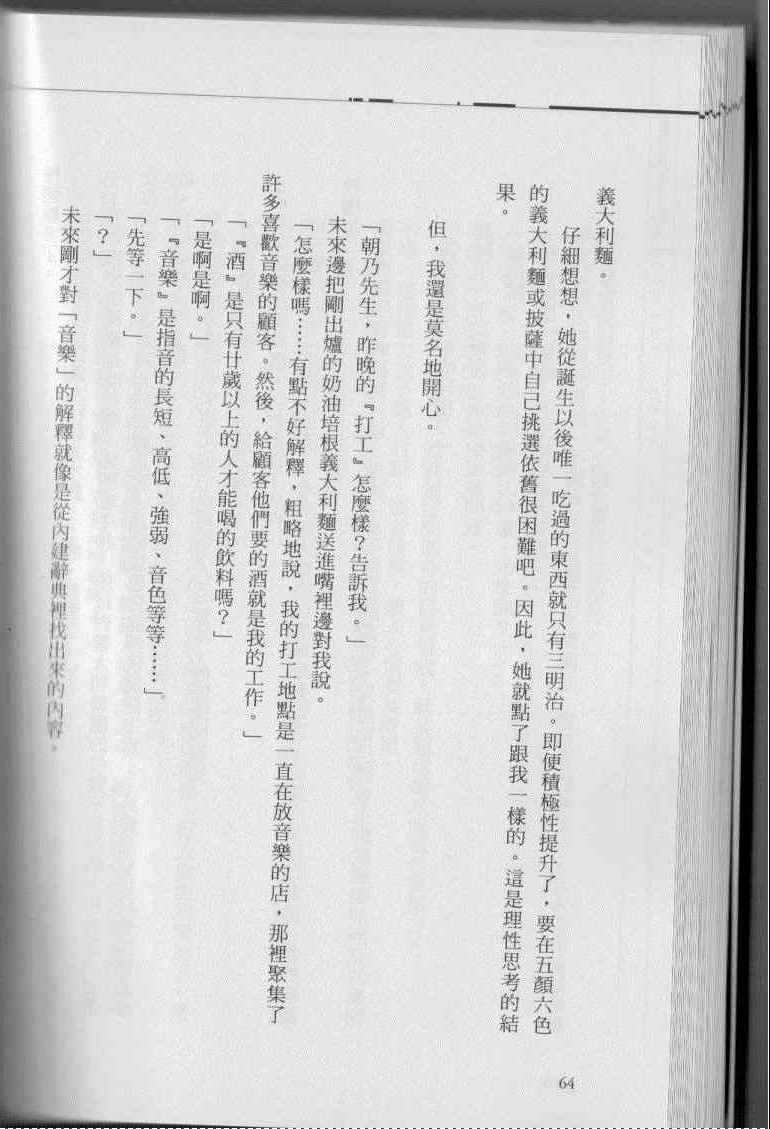 義大利麵。
仔細想想，她從誕生以後唯一吃過的東西就只有三明治。即便積極性提升了，要在五顏六色
的義大利麵或披薩中自己挑選依舊很困難吧。因此，她就點了跟我一樣的。這是理性思考的結
果。
但，我還是莫名地開心。
「朝乃先生，昨晚的『打工』怎麼樣？告訴我。」
未來邊把剛出爐的奶油培根義大利麵送進嘴裡邊對我說。
「怎麼樣嗎……有點不好解釋，粗略地說，我的打工地點是一直在放音樂的店，那裡聚集了
許多喜歡音樂的顧客。然後，給顧客他們要的酒就是我的工作。」
「『酒』是只有廿歲以上的人才能喝的飲料嗎？」
「是啊是啊。」
「『音樂』是指音的長短、高低、強弱、音色等等……」
「先等一下。」
「？」
未來剛才對「音樂」的解釋就像是從內建辭典裡找出來的內容。
64